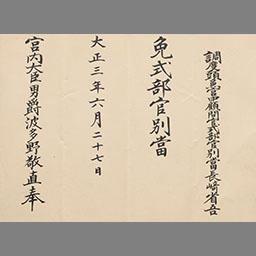 調度頭兼宮中顧問官式部官別當長崎省吾
免式部官別當
大正三年六月二十七日
宮内大臣男爵波多野敬直奉